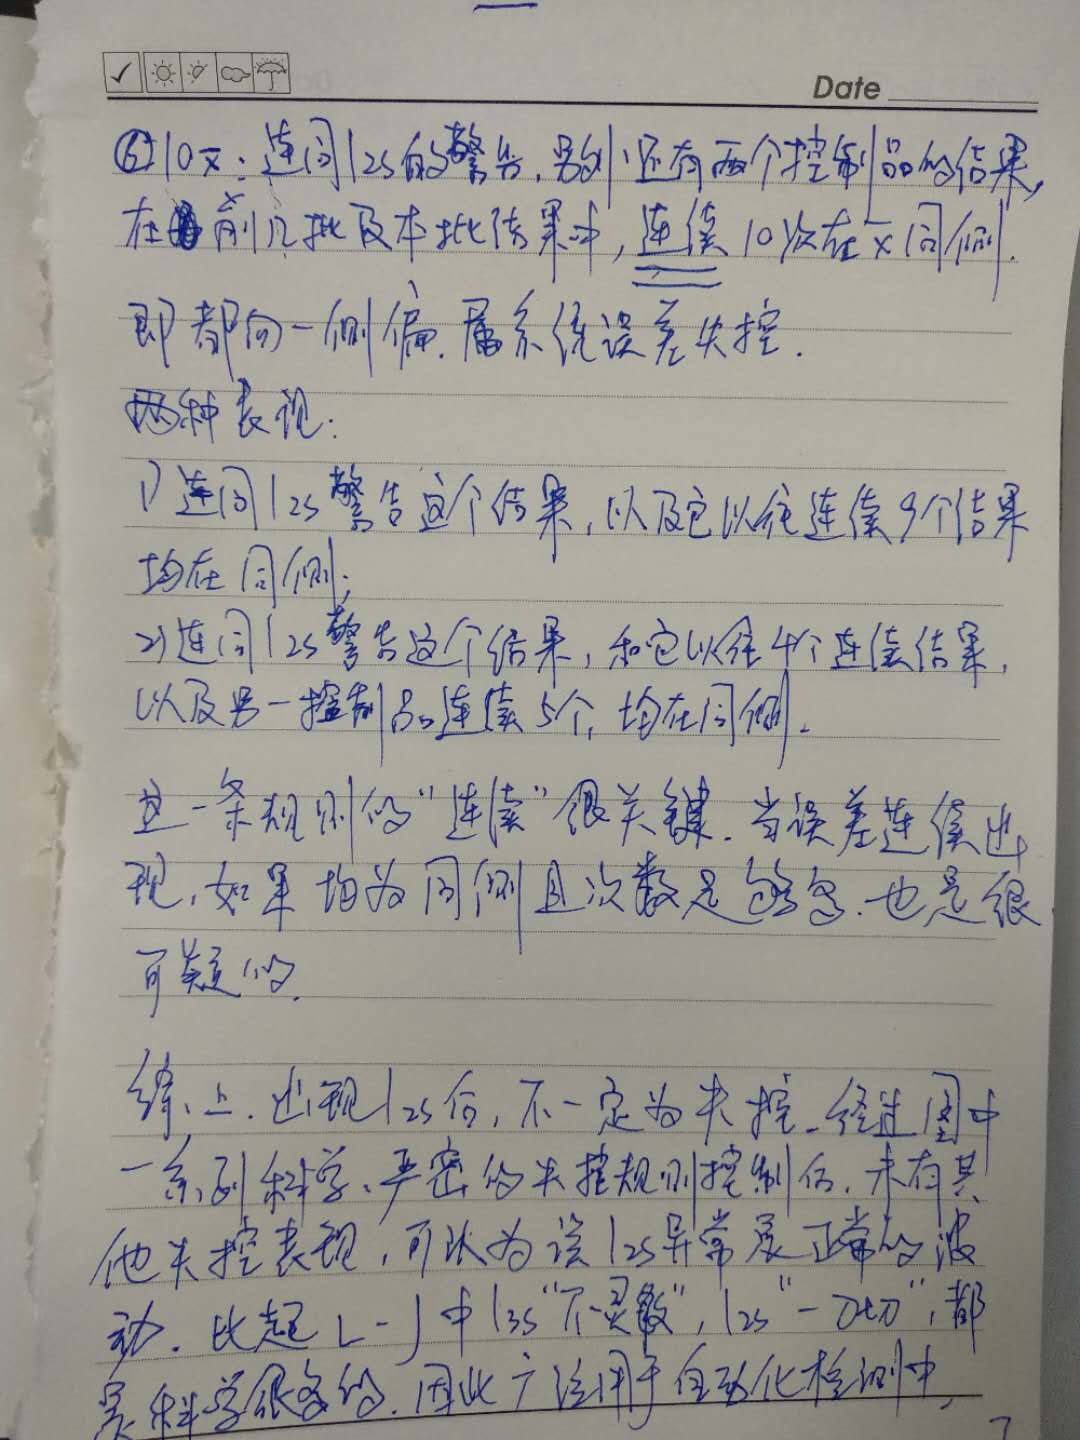 Date
⑥ 10x̄：连同1₂s的警告，另外还有两个控制品的结果，
在前几批及本批结果中，连续10次在x̄同侧.
即都向一侧偏.属系统误差失控.
两种表现：
1) 连同1₂s警告这个结果，以及它以往连续9个结果
均在同侧；
2) 连同1₂s警告这个结果，和它以往4个连续结果，
以及另一控制品连续5个，均在同侧.
这一条规则的“连续”很关键.当误差连续出
现，如果均为同侧且次数足够多.也是很
可疑的.
综上.出现1₂s后，不一定为失控.经过图中
一系列科学、严密的失控规则控制后.未有其
他失控表现，可认为该1₂s异常属正常的波
动.比起L-J中1₃s“不灵敏”，1₂s“一刀切”，都
是科学很多的.因此广泛用于自动化检测中，
7